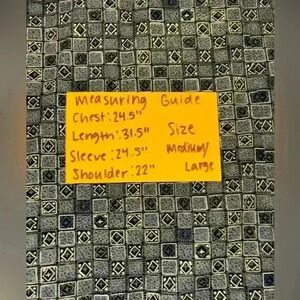 Measuring Guide
Chest: 24.5"
Length: 31.5"
Sleeve: 24.5"
Shoulder: 22"
Size
Medium/
Large